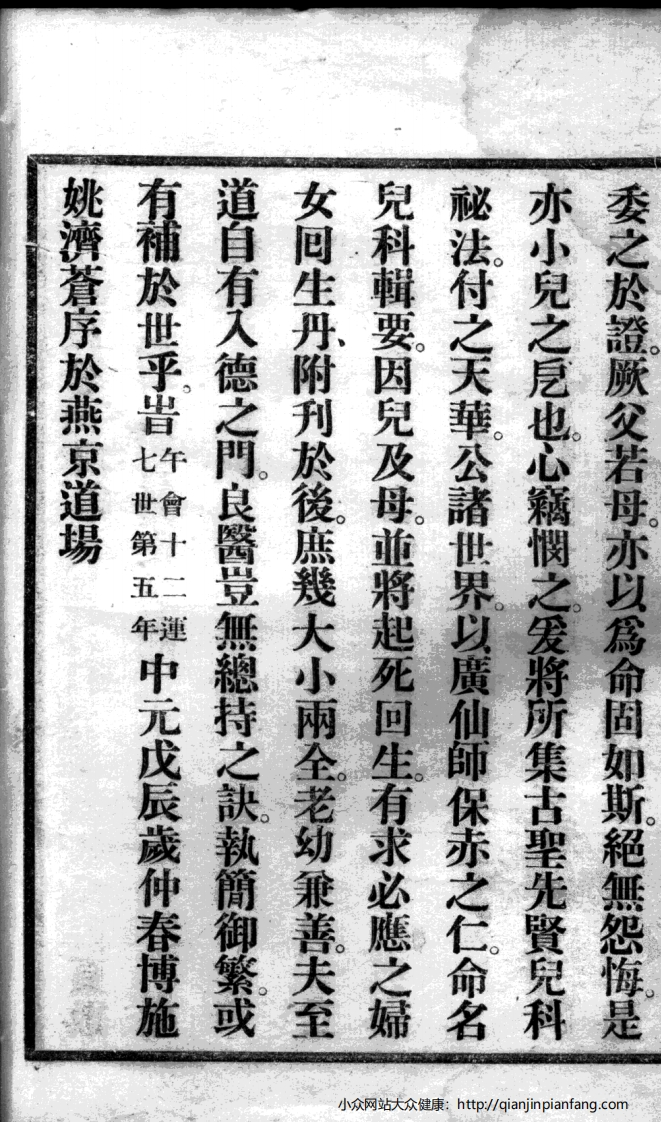 委之於證。厥父若母。亦以爲命固如斯。絕無怨悔。是
亦小兒之戹也。心竊憫之。爰將所集古聖先賢兒科
祕法。付之天華。公諸世界。以廣仙師保赤之仁。命名
兒科輯要。因兒及母。並將起死回生。有求必應之婦
女回生丹、附刊於後。庶幾大小兩全。老幼兼善。夫至
道自有入德之門。良醫豈無總持之訣。執簡御繁。或
有補於世乎。旹午會十二運七世第五年中元戊辰歲仲春博施
姚濟蒼序於燕京道場
小众网站大众健康：http://qianjinpianfang.com